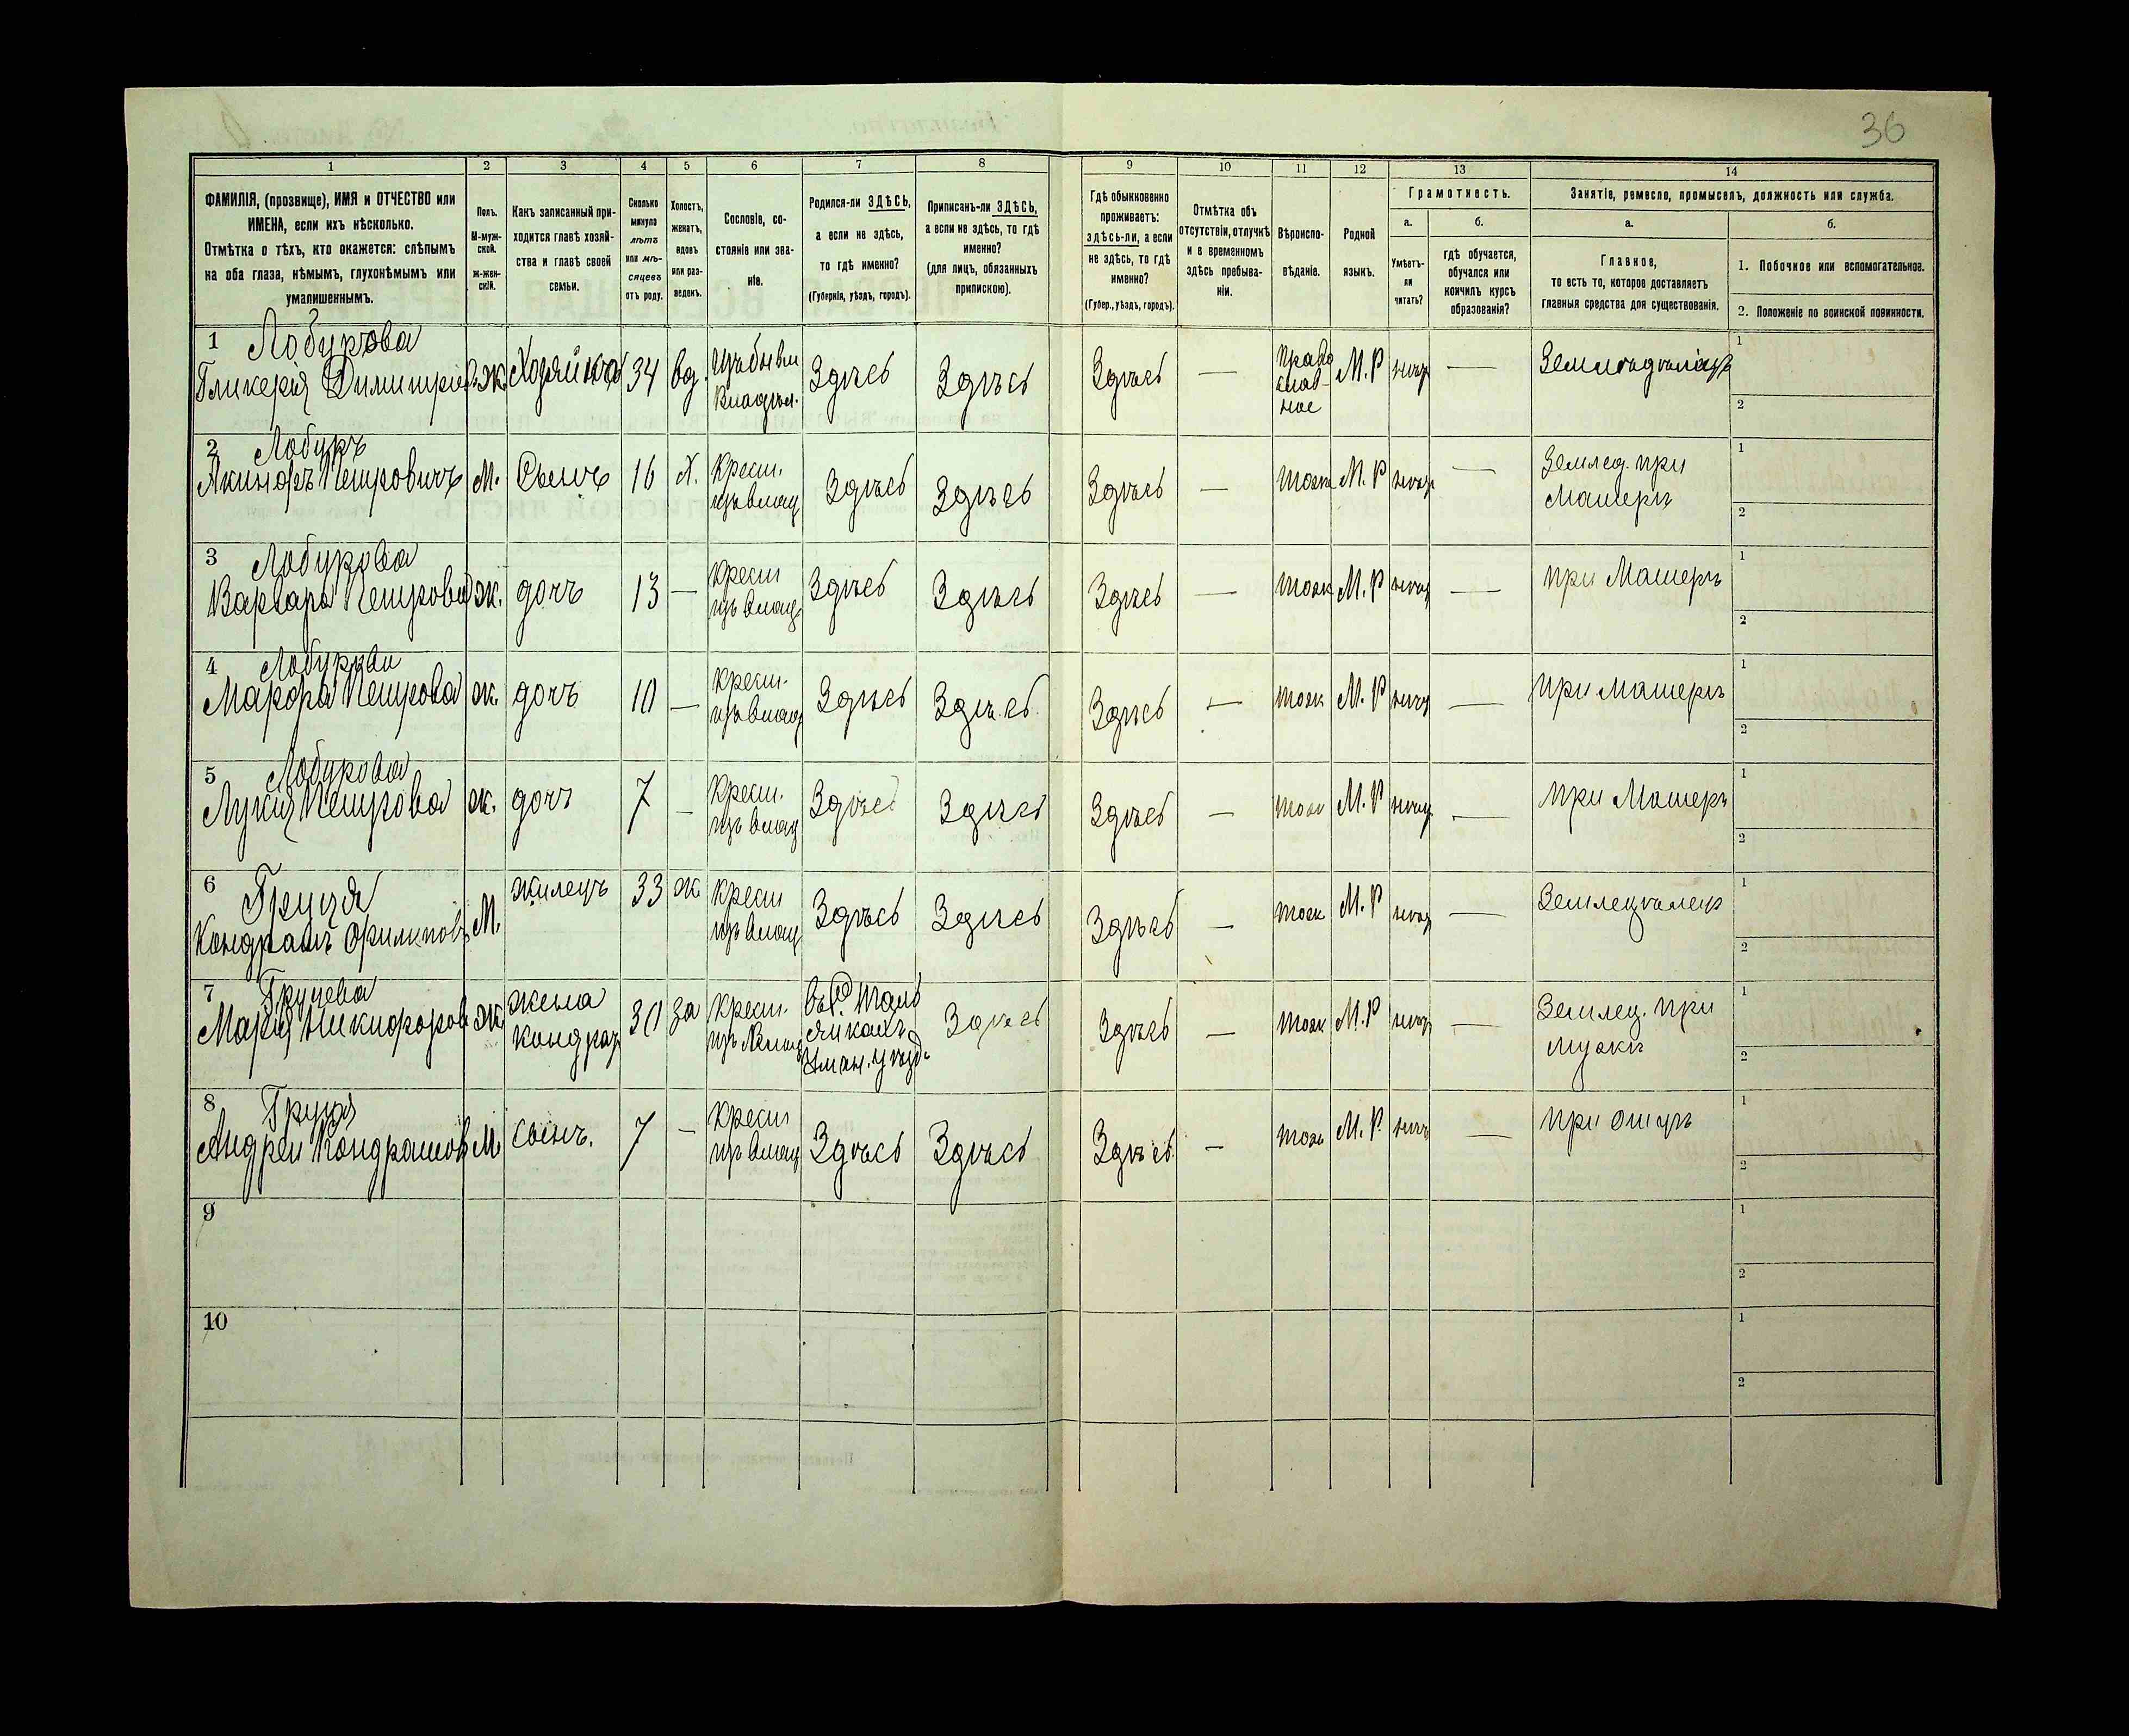 36
1 2 3 4 5 6 7 8 9 10 11 12 13 14
ФАМИЛІЯ, (прозвище), ИМЯ и ОТЧЕСТВО или
ИМЕНА, если ихъ нѣсколько.
Отмѣтка о тѣхъ, кто окажется: слѣпымъ
на оба глаза, нѣмымъ, глухонѣмымъ или
умалишеннымъ.
Полъ.
М-муж-
ской.
ж-жен-
скій.
Какъ записанный при-
ходится главѣ хозяй-
ства и главѣ своей
семьи.
Сколько
минуло
лѣтъ
или мѣ-
сяцевъ
отъ роду.
Холостъ,
женатъ,
вдовъ
или раз-
веденъ.
Сословіе, со-
стояніе или зва-
ніе.
Родился-ли ЗДѢСЬ,
а если не здѣсь,
то гдѣ именно?
(Губернія, уѣздъ, городъ).
Приписанъ-ли ЗДѢСЬ,
а если не здѣсь, то гдѣ
именно?
(для лицъ, обязанныхъ
припискою).
Гдѣ обыкновенно
проживаетъ:
здѣсь-ли, а если
не здѣсь, то гдѣ
именно?
(Губер., уѣздъ, городъ).
Отмѣтка объ
отсутствіи, отлучкѣ
и о временномъ
здѣсь пребыва-
ніи.
Вѣроиспо-
вѣданіе.
Родной
языкъ.
Грамотность.
а.
Умѣетъ-
ли
читать?
б.
гдѣ обучается,
обучался или
кончилъ курсъ
образованія?
Занятіе, ремесло, промыселъ, должность или служба.
а.
Главное,
то есть то, которое доставляетъ
главныя средства для существованія.
б.
1. Побочное или вспомогательное.
2. Положеніе по воинской повинности.
1 Лобурова
Гликерія Димитріев ж. Хозяйка 34 вд. Здѣсь Здѣсь Здѣсь — М.Р —
Право
слав-
ное
1
2
2 Лобуръ
Якимъ Петровичъ М. Сынъ 16 Х. Крест. Здѣсь Здѣсь Здѣсь — тоже М.Р —
Землед. при
Матери
1
2
3 Лобурова
Варвара Петрова ж. дочь 13 — Крест Здѣсь Здѣсь Здѣсь — тоже М.Р — при Матери
1
2
4 Лобурова
Марфа Петрова ж. дочь 10 — Крест. Здѣсь Здѣсь Здѣсь — тоже М.Р — при матери
1
2
5 Лобурова
Лукія Петрова ж. дочь 7 — Крест. Здѣсь Здѣсь Здѣсь — тоже М.Р — при Матери
1
2
6 Груця
Кондратъ Филиповъ М. жилецъ 33 ж Крест Здѣсь Здѣсь Здѣсь — тоже М.Р — Земледѣлецъ
1
2
7 Груцева
Марія Никифоров ж жена 30 за Крест. Здѣсь Здѣсь — тоже М.Р —
Кондрат
Уман. уѣзд.
Землед. при
Мужѣ
1
2
8 Груця
Андрей Кондратов М. сынъ. 7 — Крест Здѣсь Здѣсь Здѣсь — тоже М.Р. — при отцѣ
1
2
9
1
2
10
1
2